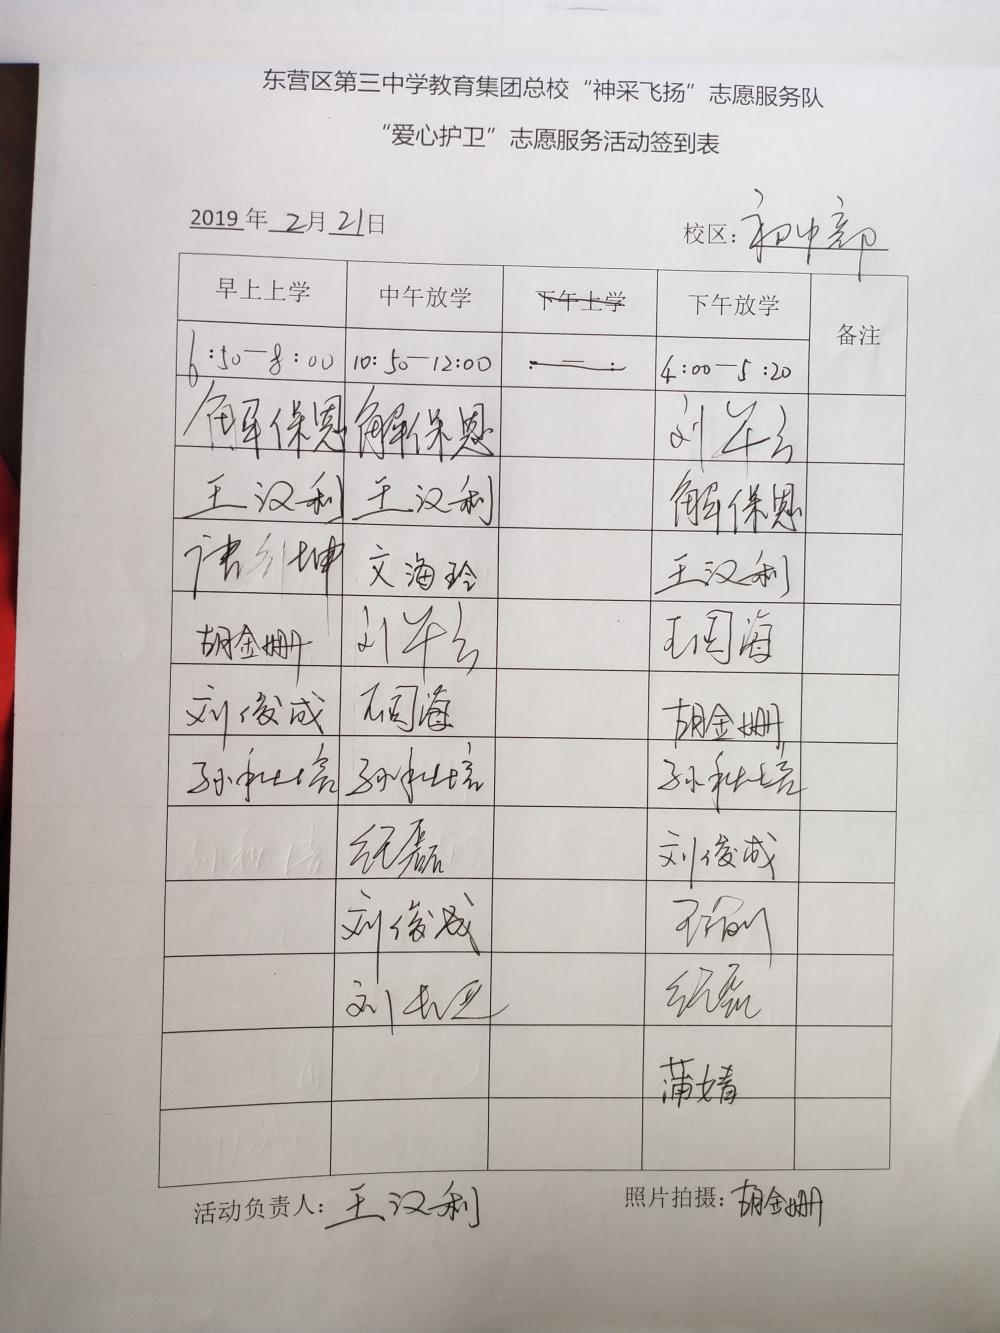 东营区第三中学教育集团总校“神采飞扬”志愿服务队
“爱心护卫”志愿服务活动签到表
2019年 2月 21日 校区：初中部
早上上学 中午放学 下午上学 下午放学 备注
6:50—8:00 10:50—12:00 :—: 4:00—5:20
解保恩 解保恩 刘华云
王汉利 王汉利 解保恩
坤 文海玲 王汉利
胡金姗 刘华云 海
刘俊成 海 胡金姗
孙秋培 孙秋培 孙秋培
纪磊 刘俊成
刘俊成
刘 纪磊
蒲婧
活动负责人：王汉利 照片拍摄：胡金姗